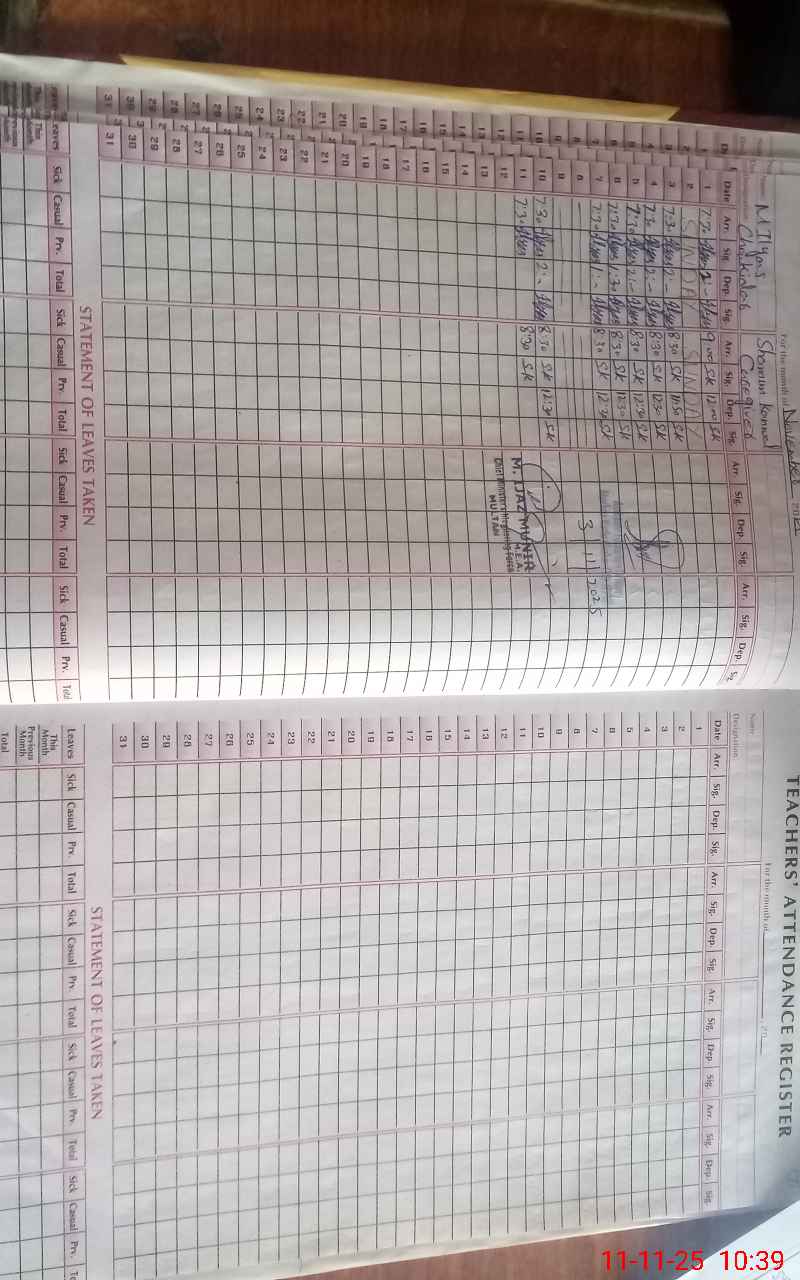 For the month of November
M Ilyas Shamim Kanwal
Chokidar Caregiver
Date Arr. Sig. Dep. Sig. Arr. Sig. Dep. Sig. Arr. Sig. Dep. Sig. Arr. Sig. Dep.
1 7:30 Ilyas 2:- Ilyas 9:00 SK 12:00 SK
2 SUNDAY SUNDAY
3 7:30 Ilyas 2:- Ilyas 8:30 SK 11:50 SK
4 7:30 Ilyas 2:- Ilyas 8:30 SK 12:30 SK
5 7:30 Ilyas 2:- Ilyas 8:30 SK 12:30 SK
6 7:30 Ilyas 1:30 Ilyas 8:30 SK 12:30 SK
7 7:30 Ilyas 1:- Ilyas 8:30 SK 12:30 SK
8 3/11/2025
9
10 7:30 Ilyas 2:- Ilyas 8:30 SK 12:30 SK
11 7:30 Ilyas 8:30 SK
M. IJAZ MUNIR
M.E.A.
Chief Minister's Monitoring Force
MULTAN
12
13
14
15
16
17
18
19
20
21
22
23
24
25
26
27
28
29
30
31
STATEMENT OF LEAVES TAKEN
Leaves Sick Casual Prv. Total Sick Casual Prv. Total Sick Casual Prv. Total Sick Casual Prv. Total
This Month
Previous Month
TEACHERS' ATTENDANCE REGISTER
For the month of 20
Name
Designation
Date Arr. Sig. Dep. Sig. Arr. Sig. Dep. Sig. Arr. Sig. Dep. Sig. Arr. Sig. Dep. Sig.
1
2
3
4
5
6
7
8
9
10
11
12
13
14
15
16
17
18
19
20
21
22
23
24
25
26
27
28
29
30
31
STATEMENT OF LEAVES TAKEN
Leaves Sick Casual Prv. Total Sick Casual Prv. Total Sick Casual Prv. Total Sick Casual Prv.
This Month
Previous Month
Total
11-11-25 10:39